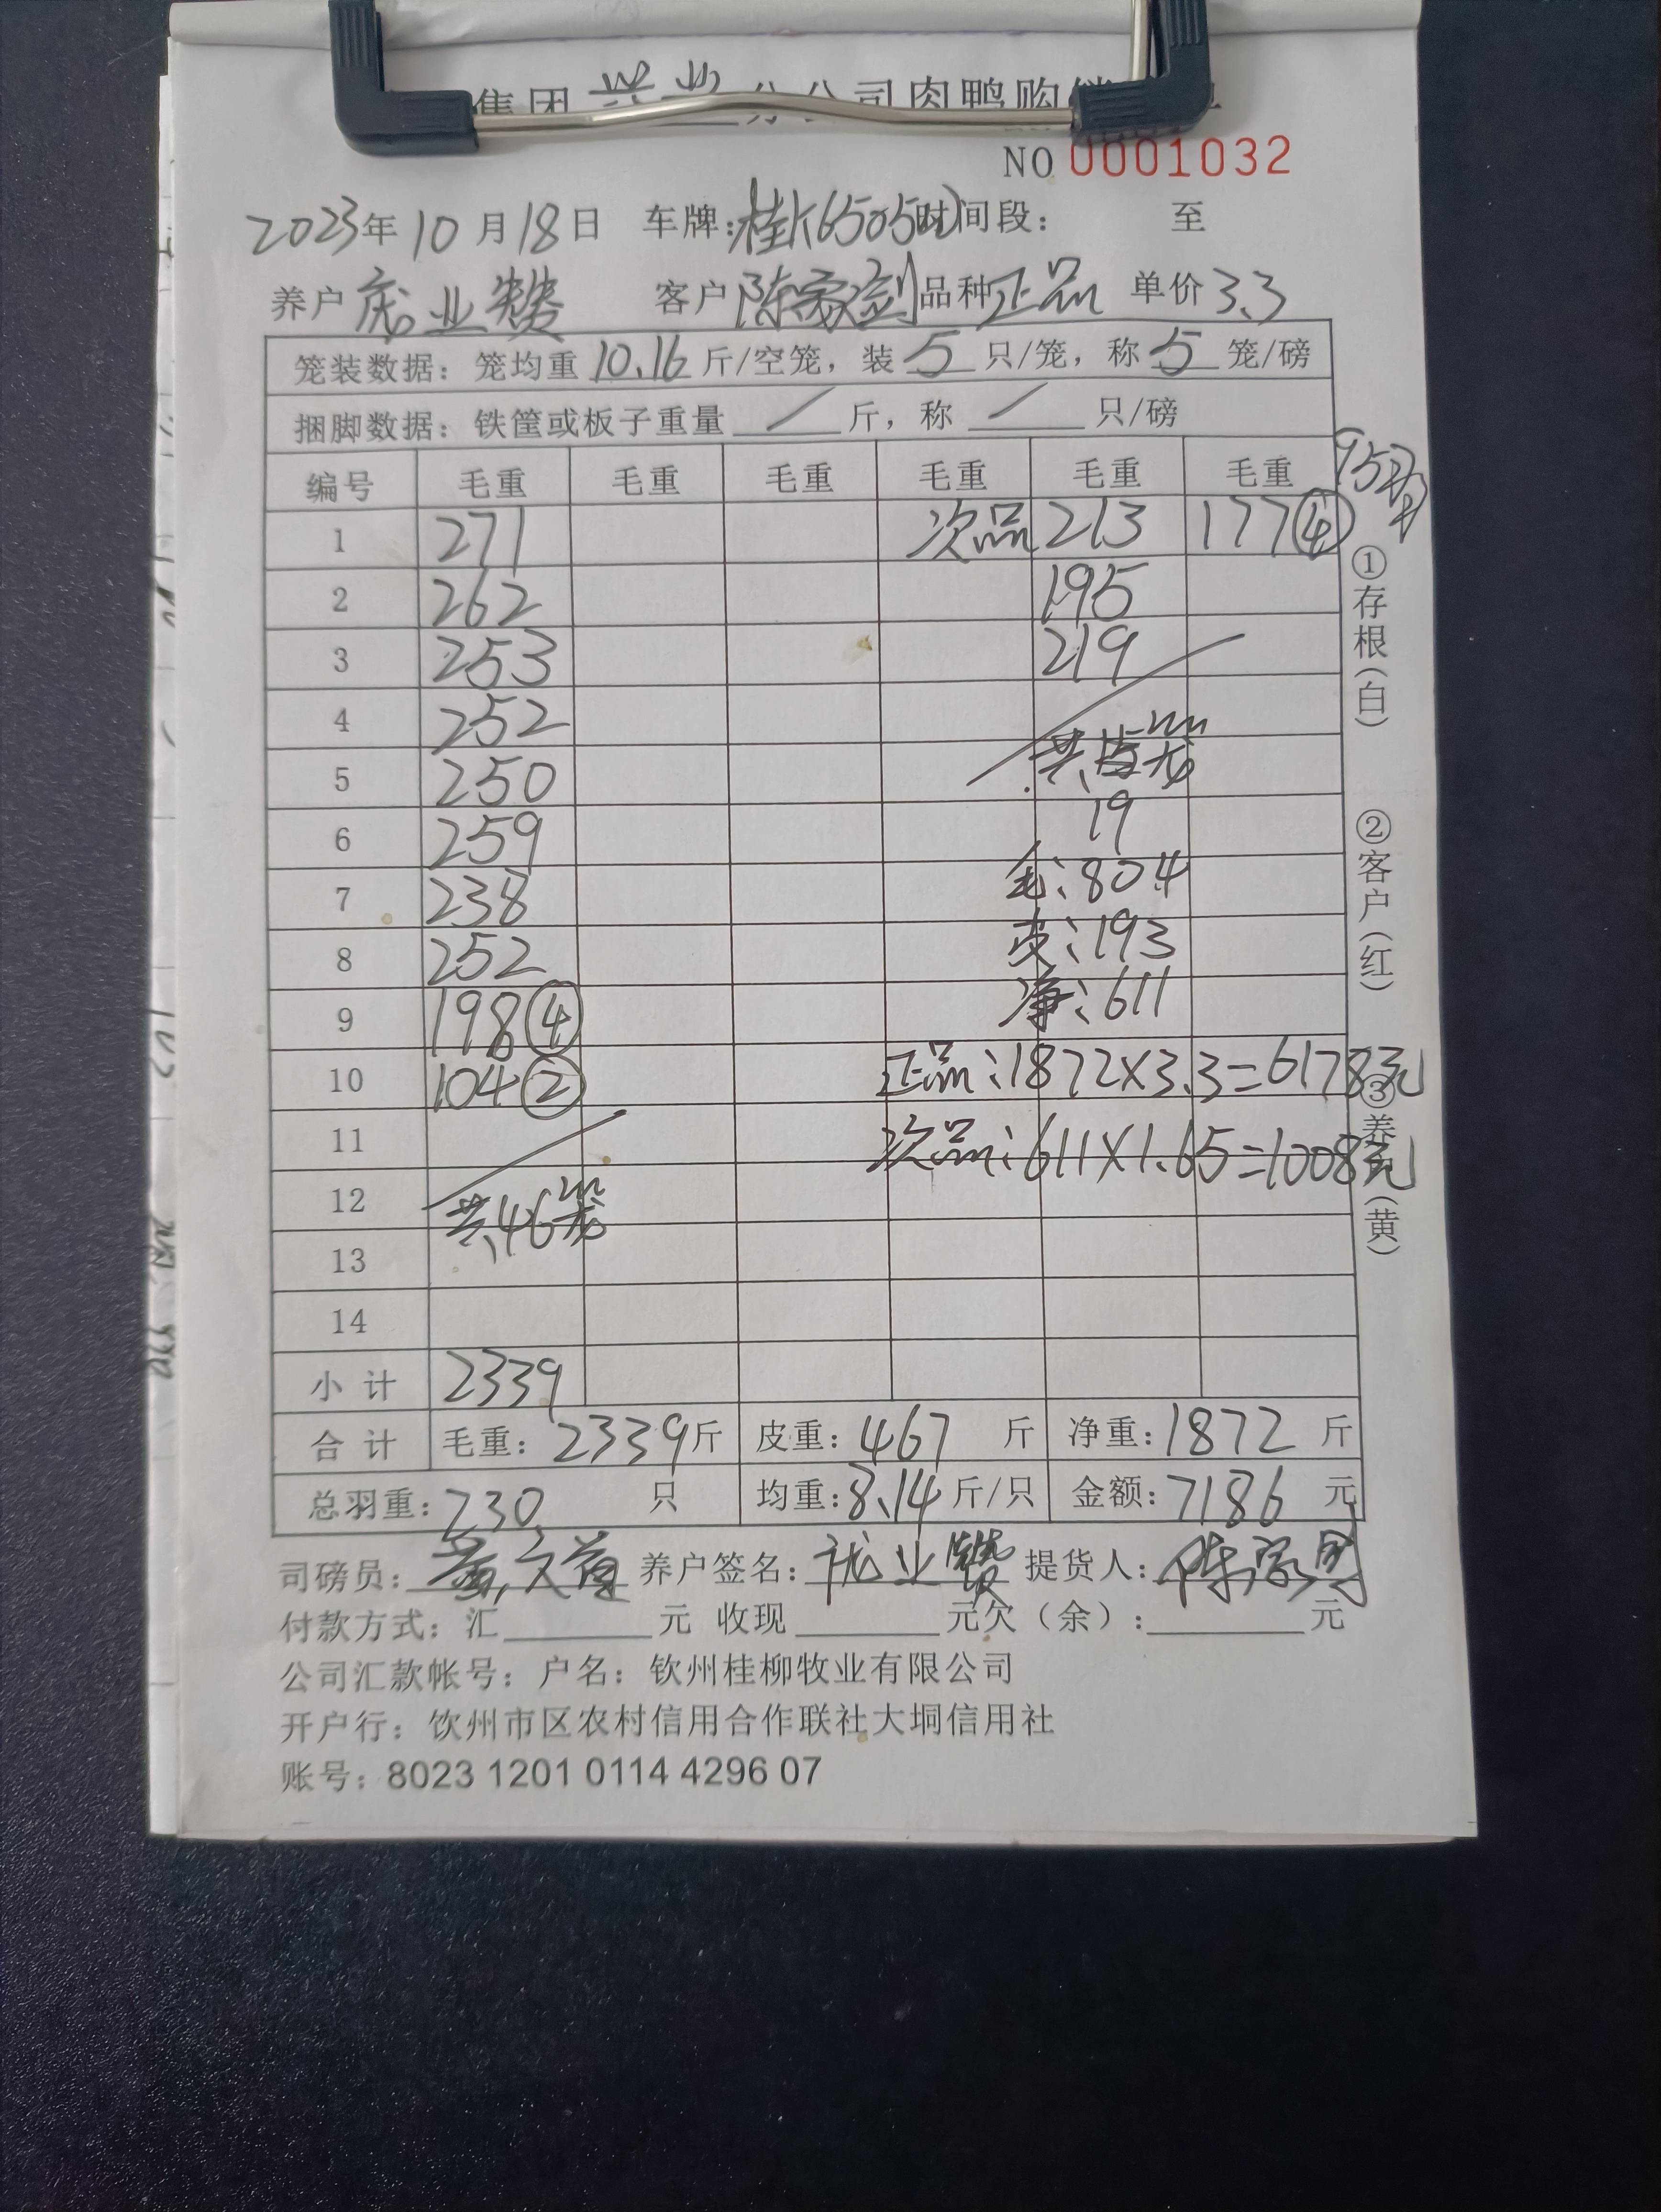 集团 兴业 分公司肉鸭购销
NO 0001032
2023年10月18日 车牌:桂K6505时间段: 至
养户 业赞 客户 陈家剑 品种 正品 单价 3.3
笼装数据: 笼均重 10.16 斤/空笼, 装 5 只/笼, 称 5 笼/磅
捆脚数据: 铁筐或板子重量 / 斤, 称 / 只/磅
编号 毛重 毛重 毛重 毛重 毛重 毛重 95只
1 271 次品 213 177④
2 262 195
3 253 219
4 252
5 250 共 笼
6 259 19
7 238 毛:804
8 252 皮:193
9 198④ 净:611
10 104② 正品:1872×3.3=6178元
11 次品:611×1.65=1008元
12 共46笼
13
14
小计 2339
合计 毛重: 2339斤 皮重: 467 斤 净重: 1872 斤
总羽重: 230 只 均重: 8.14 斤/只 金额: 7186 元
司磅员: 养户签名: 业赞 提货人: 陈家
付款方式: 汇 元 收现 元欠(余): 元
公司汇款帐号: 户名: 钦州桂柳牧业有限公司
开户行: 饮州市区农村信用合作联社大垌信用社
账号: 8023 1201 0114 4296 07
①存根(白)
②客户(红)
③养 (黄)